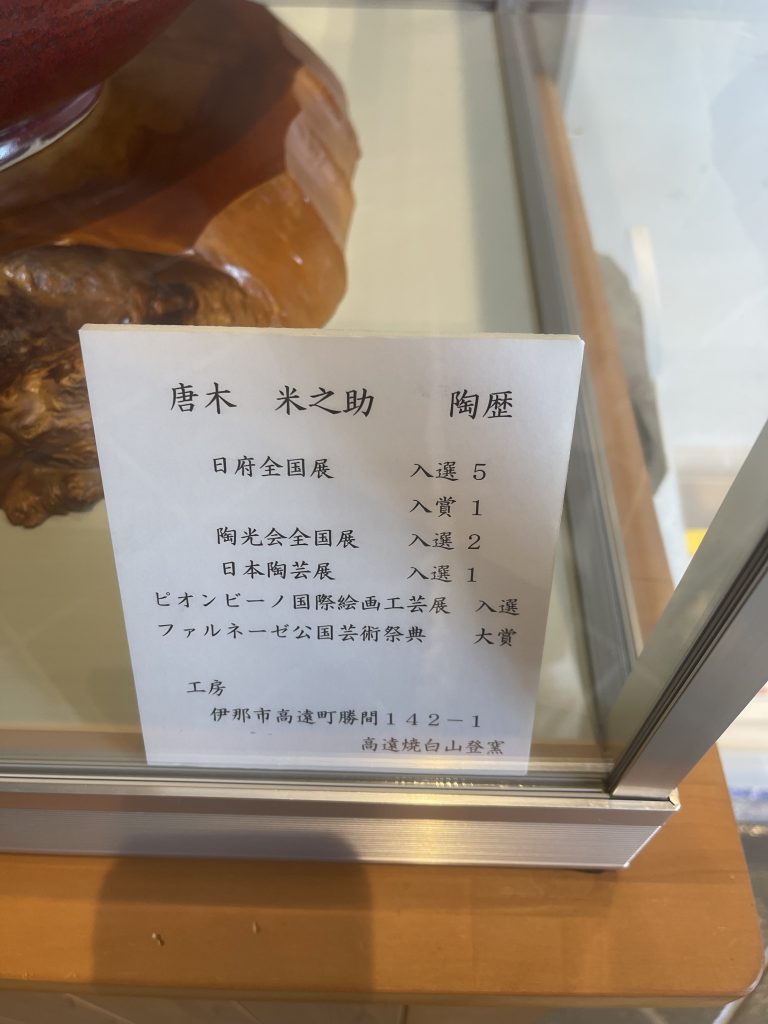 唐木　米之助　　陶歴
日府全国展　　入選 5
入賞 1
陶光会全国展　　入選 2
日本陶芸展　　入選 1
ピオンビーノ国際絵画工芸展　入選
ファルネーゼ公国芸術祭典　　大賞
工房
伊那市高遠町勝間１４２－１
高遠焼白山登窯